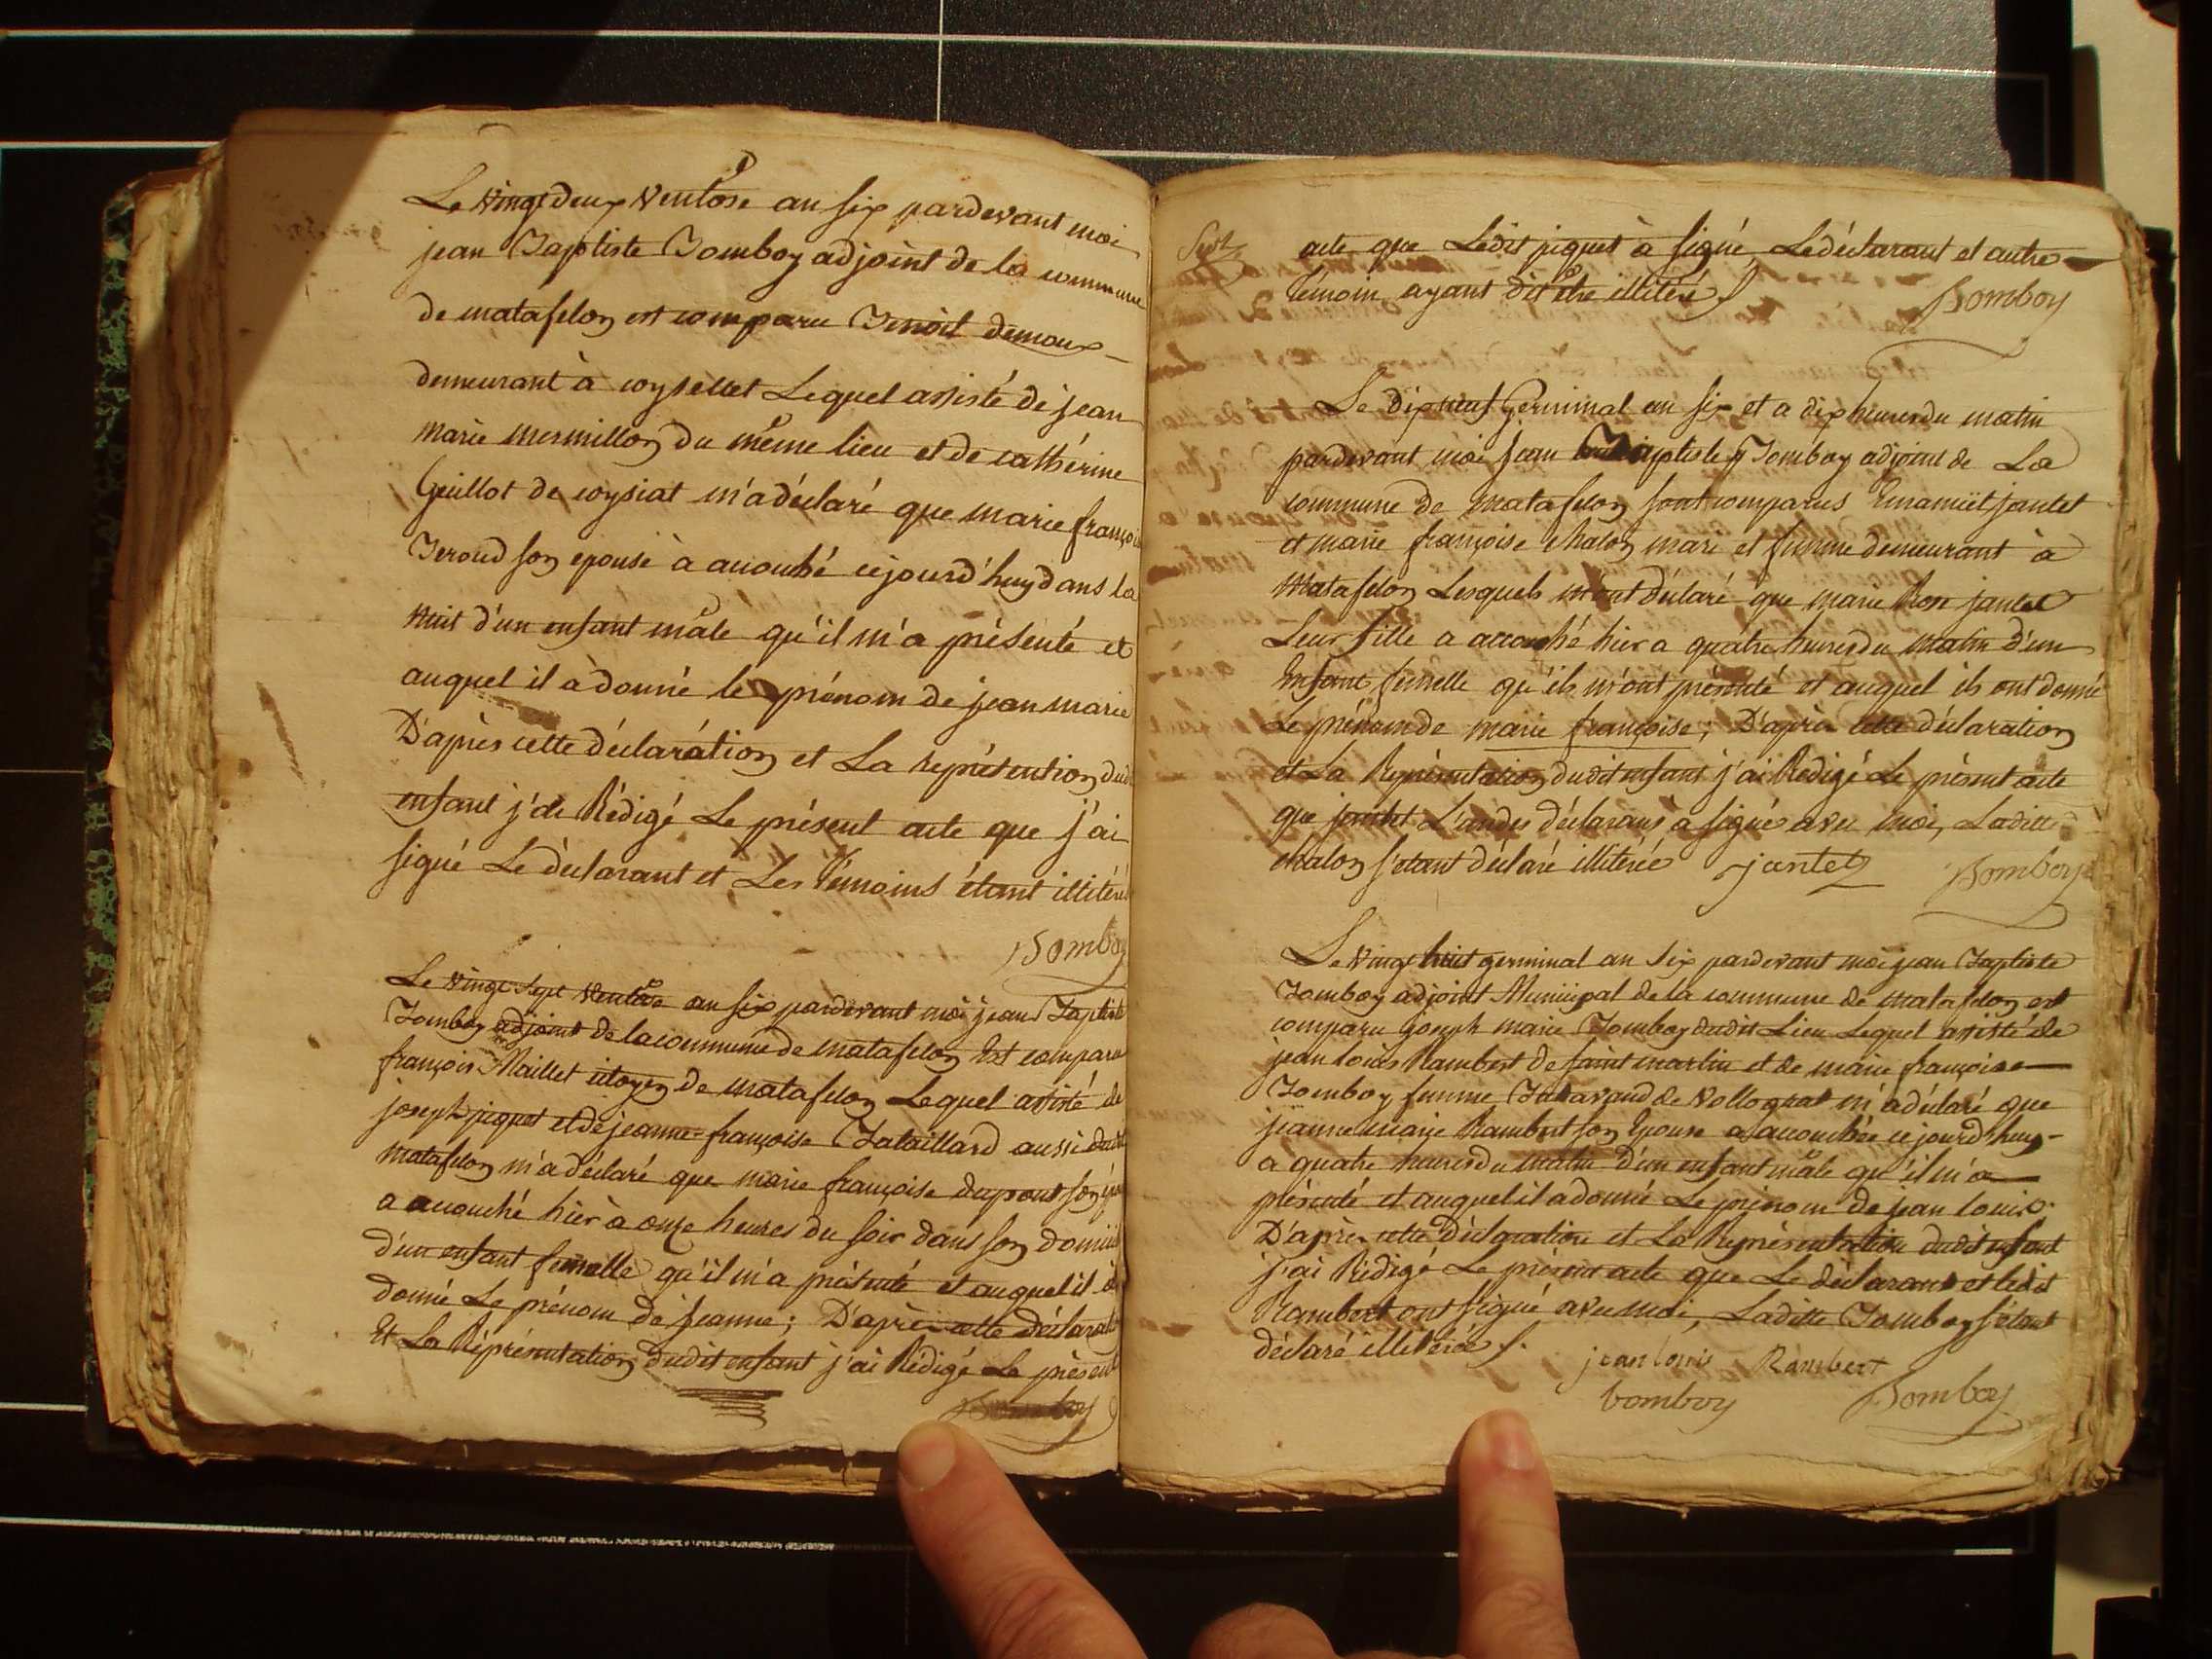 Le vingt deux ventôse an six pardevant moi
jean Baptiste Bomboy adjoint de la commune
de matafelon est comparu Benoit demoux
demeurant à coyselet Lequel assisté de jean
marie mermillon du même lieu et de cathérine
Guillot de coysiat m'a déclaré que marie françoi
Beroud son epouse à accouché cejourd'huy dans la
nuit d'un enfant mâle qu'il m'a présenté et
auquel il à donné le prénom de jean marie
D'après cette déclarátion et La représention dud
enfant j'ai Rédigé Le présent acte que j'ai
signé Le déclarant et Les témoins étant illitéré
Bomboy
Le vingt Sept ventôse an six pardevant moi jean Baptiste
Bomboy adjoint de la commune de matafelon Est comparu
françois Maillet citoyen de matafelon Lequel assisté de
joseph piquet et de jeanne françoise Bataillard aussi dudit
matafelon m'a déclaré que marie françoise dupont son épou
a accouché hier à onze heures du soir dans son domicil
d'un enfant femelle qu'il m'a présenté et auquel il à
donné Le prénom de Jeanne; D'après cette déclarat
Et La Réprésentation dudit enfant j'ai Rédigé Le présent
Bomboy
acte que Ledit piquet à signé Le déclarant et autre
témoin ayant dit être illitéré
Bomboy
Le dix neuf Germinal an six et a dix heures du matin
pardevant moi Jean Baptiste Bomboy adjoint de La
commune de matafelon sont comparus jantet
et marie françoise chalon mari et femme demeurant à
Matafelon Lesquels m'ont déclaré que marie Rose jantet
Leur fille a accouché hier a quatre heures du matin d'un
Enfant femelle qu'ils m'ont présenté et auquel ils ont donné
Le prénom de marie françoise; D'après cette déclaration
et La Représentation dudit enfant j'ai Rédigé Le présent acte
que jantet L'un des déclarans à signé avec moi, Laditte
chalon s'etant déclaré illitérée jantet Bomboy
Le vingt huit germinal an six pardevant moi jean Baptiste
Bomboy adjoint Municipal de la commune de matafelon est
comparu joseph marie Bomboy dudit Lieu Lequel assisté de
jean louis Rambert de saint martin et de marie françoise
Bomboy femme de Vollognat m'a déclaré que
jeanne marie Rambert son Epouse a accouchée cejourd'huy
a quatre heures du matin d'un enfant mâle qu'il m'a
présenté et auquel il a donné Le prénom de jean louis.
D'après cette déclaration et La Représentation dudit enfant
j'ai Rédigé Le présent acte que Le déclarant et ledit
Rambert ont signé avec moi, Laditte Bomboy s'étant
déclaré illitérée
jean louis Rambert
bomboy Bomboy